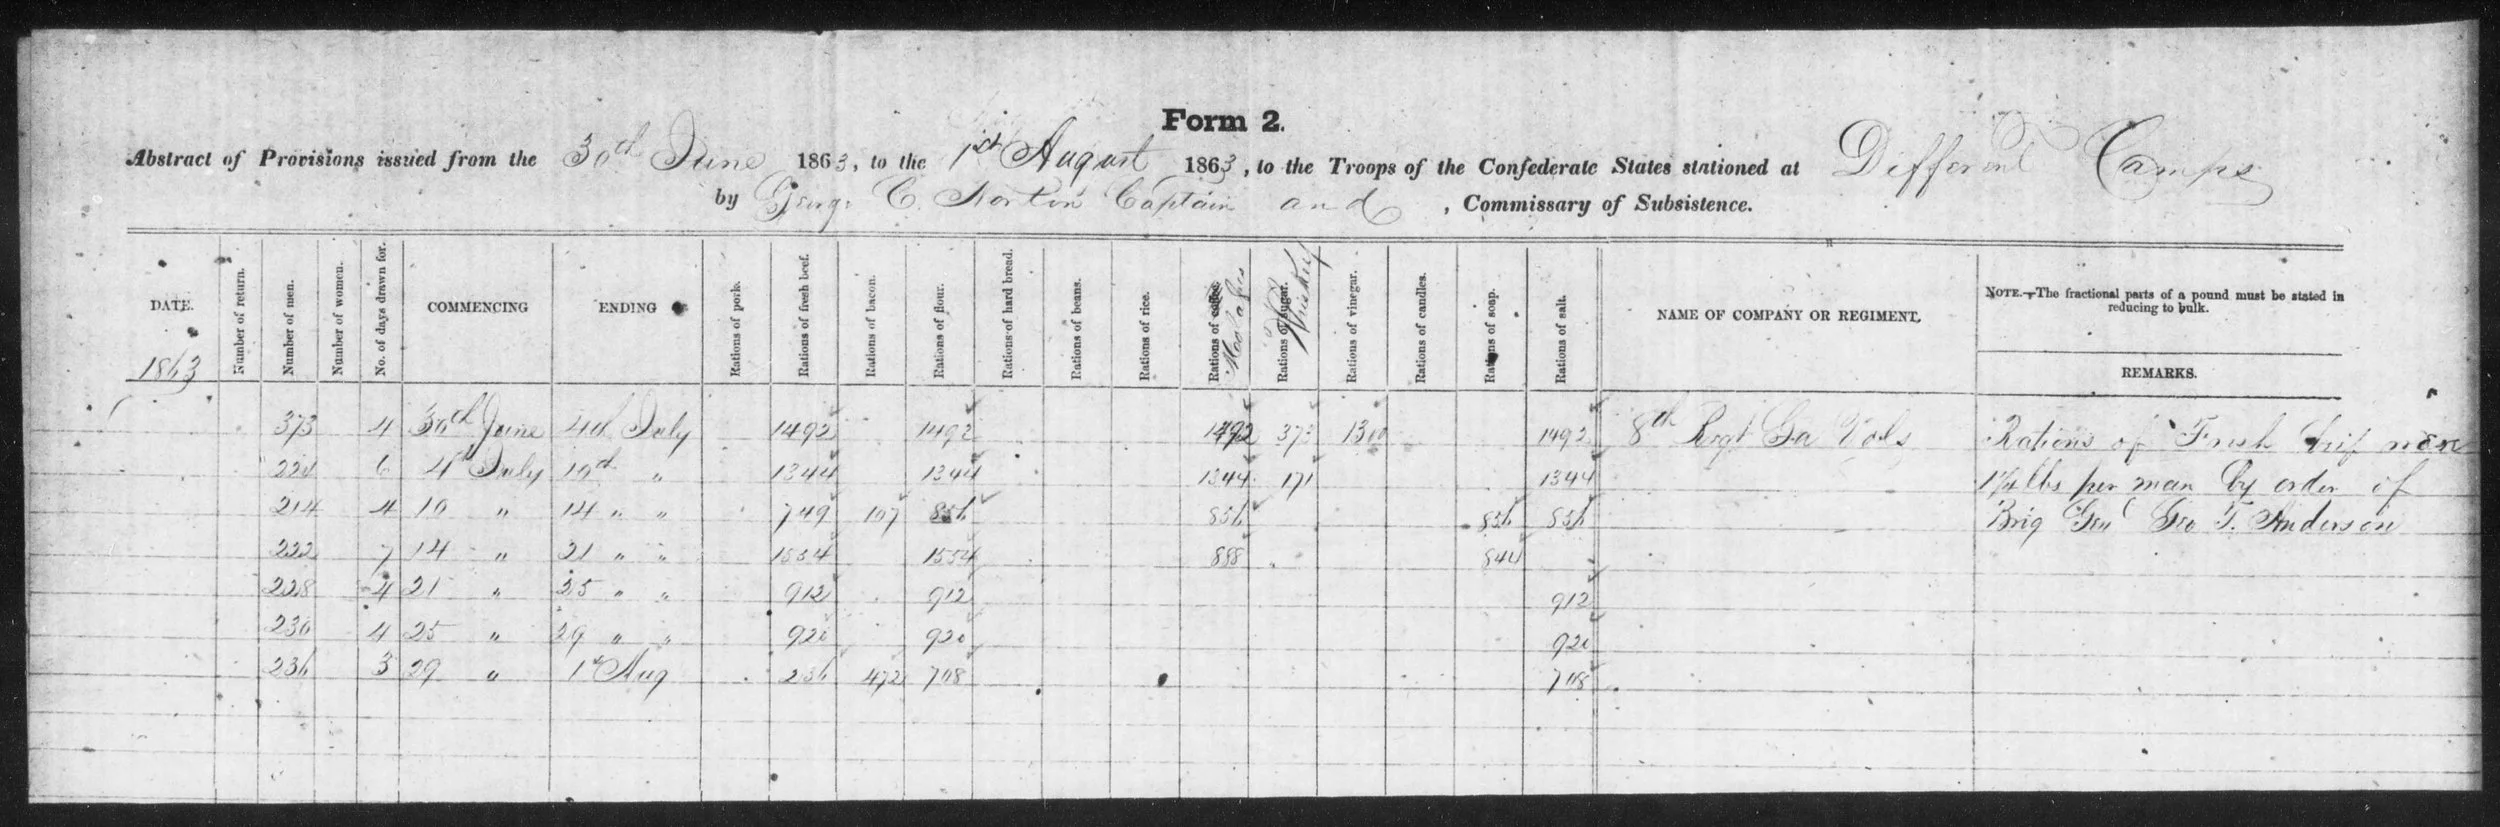 Form 2.
Abstract of Provisions issued from the 30th June 1863, to the 1st August 1863, to the Troops of the Confederate States stationed at Different Camps
by George C. Norton Captain and , Commissary of Subsistence.
DATE. Number of return. Number of men. Number of women. No. of days drawn for. COMMENCING ENDING Rations of pork. Rations of fresh beef. Rations of bacon. Rations of flour. Rations of hard bread. Rations of beans. Rations of rice. Rations of coffee. Rations of sugar. Whiskey Rations of vinegar. Rations of candles. Rations of soap. Rations of salt. NAME OF COMPANY OR REGIMENT. NOTE.—The fractional parts of a pound must be stated in reducing to bulk.
1863 REMARKS.
373 4 30th June 4th July 1492 1492 1492 373 1300 1492 8th Regt Ga Vols Rations of Fresh beef were
224 6 4th July 10th " 1344 1344 1344 171 1344 1¼ lbs per man by order of
214 4 10 " 14 " " 749 107 856 856 856 856 Brig Genl Geo T. Anderson
222 7 14 " 21 " " 1554 1554 888 844
228 4 21 " 25 " " 912 912 912
230 4 25 " 29 " " 920 920 920
236 3 29 " 1st Aug 236 472 708 708